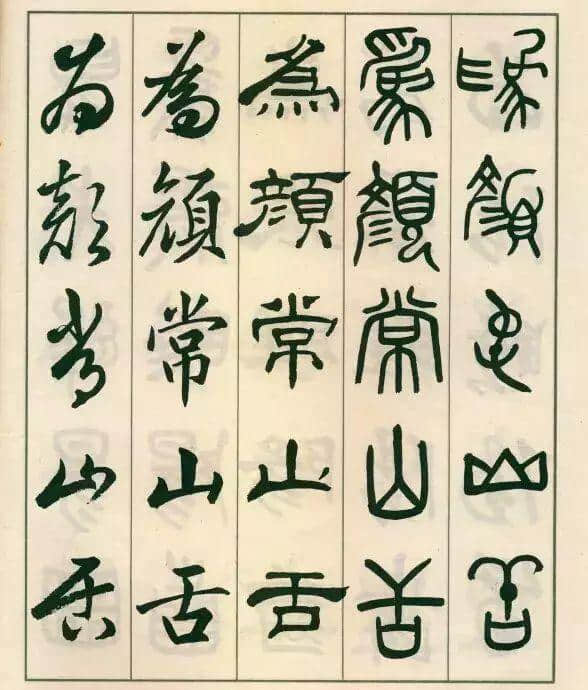 為顏常山舌
為顏常山舌
為顏常山舌
為顏常山舌
為顏常山舌